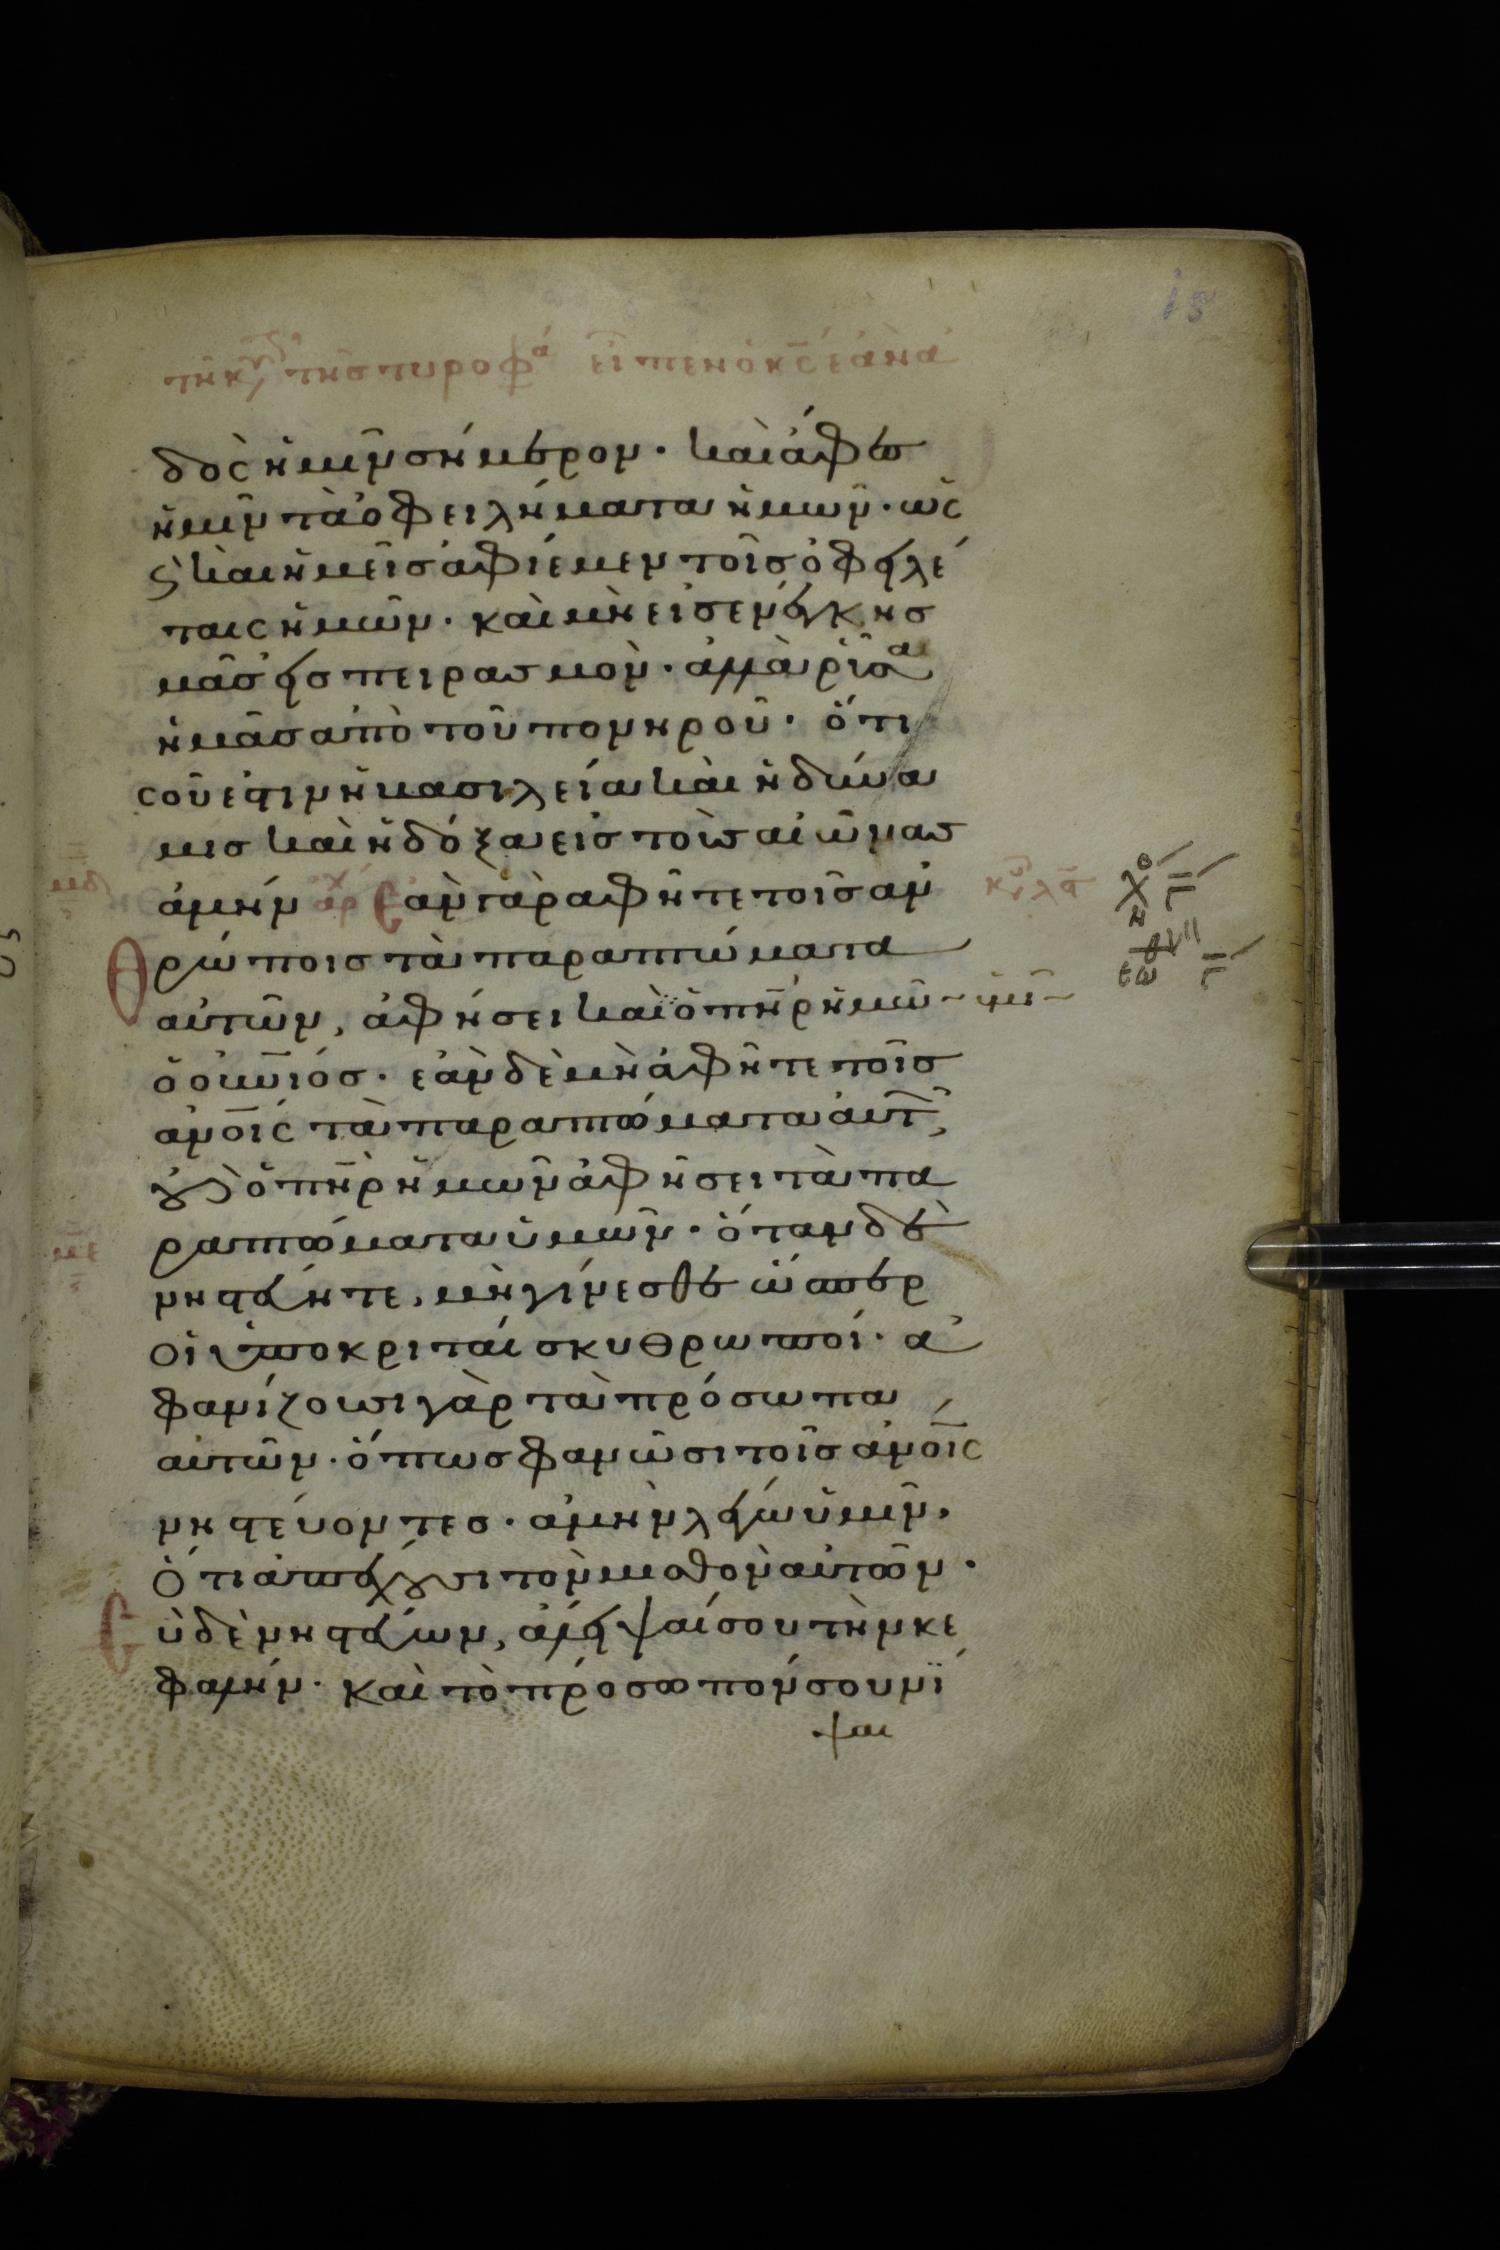 τῆ κυ τῆς τυροφα εἶπεν ὁ κς ἐὰν ἀ
δὸς ἡμῖν σήμερον · καὶ ἄφες
ἡμῖν τὰ ὀφειλήματα ἡμῶν · ὡς
καὶ ἡμεῖς ἀφίεμεν τοῖς ὀφειλέ
ταις ἡμῶν · καὶ μὴ εἰσενέγκης
μᾶς εἰς πειρασμὸν · ἀλλὰ ῥῦσαι
ἡμᾶς ἀπὸ τοῦ πονηροῦ · ὅτι
σοῦ ἐστιν ἡ βασιλεία καὶ ἡ δύνα
μις καὶ ἡ δόξα εἰς τοὺς αἰῶνας
ἀμήν ἀρχ Ἐὰν γὰρ ἀφῆτε τοῖς ἀν
Θρώποις τὰ παραπτώματα
αὐτῶν, ἀφήσει καὶ ὁ πηρ ἡμῶ~ ὑμῖ~
ὁ οὐνιός · ἐὰν δὲ μὴ ἀφῆτε τοῖς
ἀνοις τὰ παραπτώματα αὐτ,
οὐδὲ ὁ πηρ ἡμῶν ἀφήσει τὰ πα
ραπτώματα ὑμῶν · ὅταν δὲ
νηστεύητε, μὴ γίνεσθε ὥσπερ
οἱ ὑποκριταί σκυθρωποί · ἀ
φανίζουσι γὰρ τὰ πρόσωπα
αὐτῶν · ὅπως φανῶσι τοῖς ἀνοις
νηστεύοντες · ἀμὴν λέγω ὑμῖν,
Ὅτι ἀπέχουσι τὸν μισθὸν αὐτῶν ·
Σὺ δὲ νηστεύων, ἄλειψαί σου τὴν κε
φαλήν · καὶ τὸ πρόσωπόν σου νί
ψαι